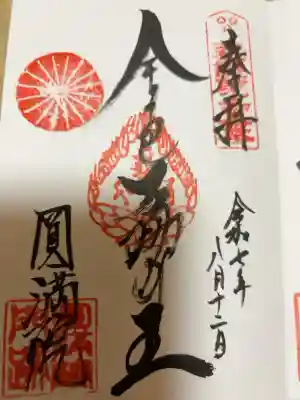 奉拝
令和七年
八月十二日
金色不動明王
圓満院